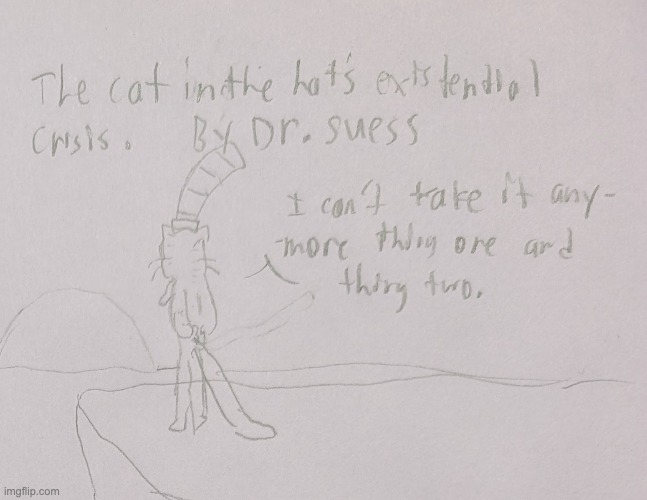 The cat in the hat's existential
crisis. By Dr. Suess
I can't take it any-
-more thing one and
thing two.
imgflip.com